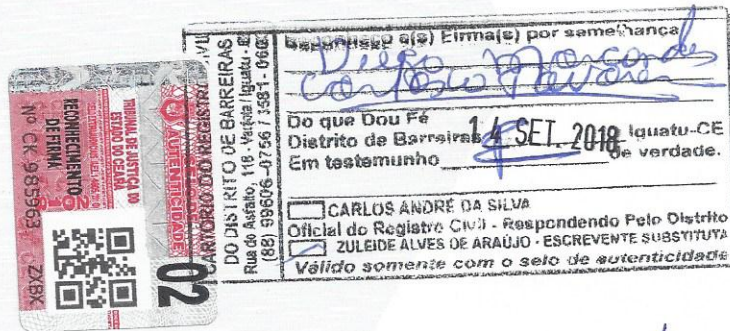 TRIBUNAL DE JUSTIÇA DO
ESTADO DO CEARÁ
RECONHECIMENTO
DE FIRMA
Nº CK 985963 CZBX
SELO DE
AUTENTICIDADE
02
CARTÓRIO DO REGISTRO CIVIL
DO DISTRITO DE BARREIRAS
Rua do Asfalto, 118 - Varjota / Iguatu - CE
(88) 99606-0756 / 3581 - 0160
Reconheço a(s) Firma(s) por semelhança
Diego Marcondes
Cartaxo Tavares
Do que Dou Fé
Distrito de Barreiras 14 SET. 2018 Iguatu-CE
Em testemunho de verdade.
CARLOS ANDRÉ DA SILVA
Oficial do Registro Civil - Respondendo Pelo Distrito
ZULEIDE ALVES DE ARAÚJO - ESCREVENTE SUBSTITUTA
Válido somente com o selo de autenticidade